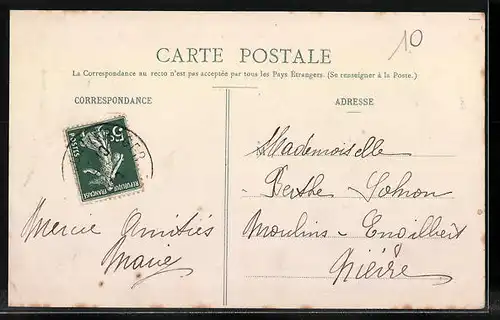 10
CARTE POSTALE
La Correspondance au recto n'est pas acceptée par tous les Pays Étrangers. (Se renseigner à la Poste.)
CORRESPONDANCE
ADRESSE
5c
POSTES
REPUBLIQUE FRANÇAISE
Mademoiselle
Berthe
Moulins - Engilbert
Nièvre
Merci Amitiés
Marie